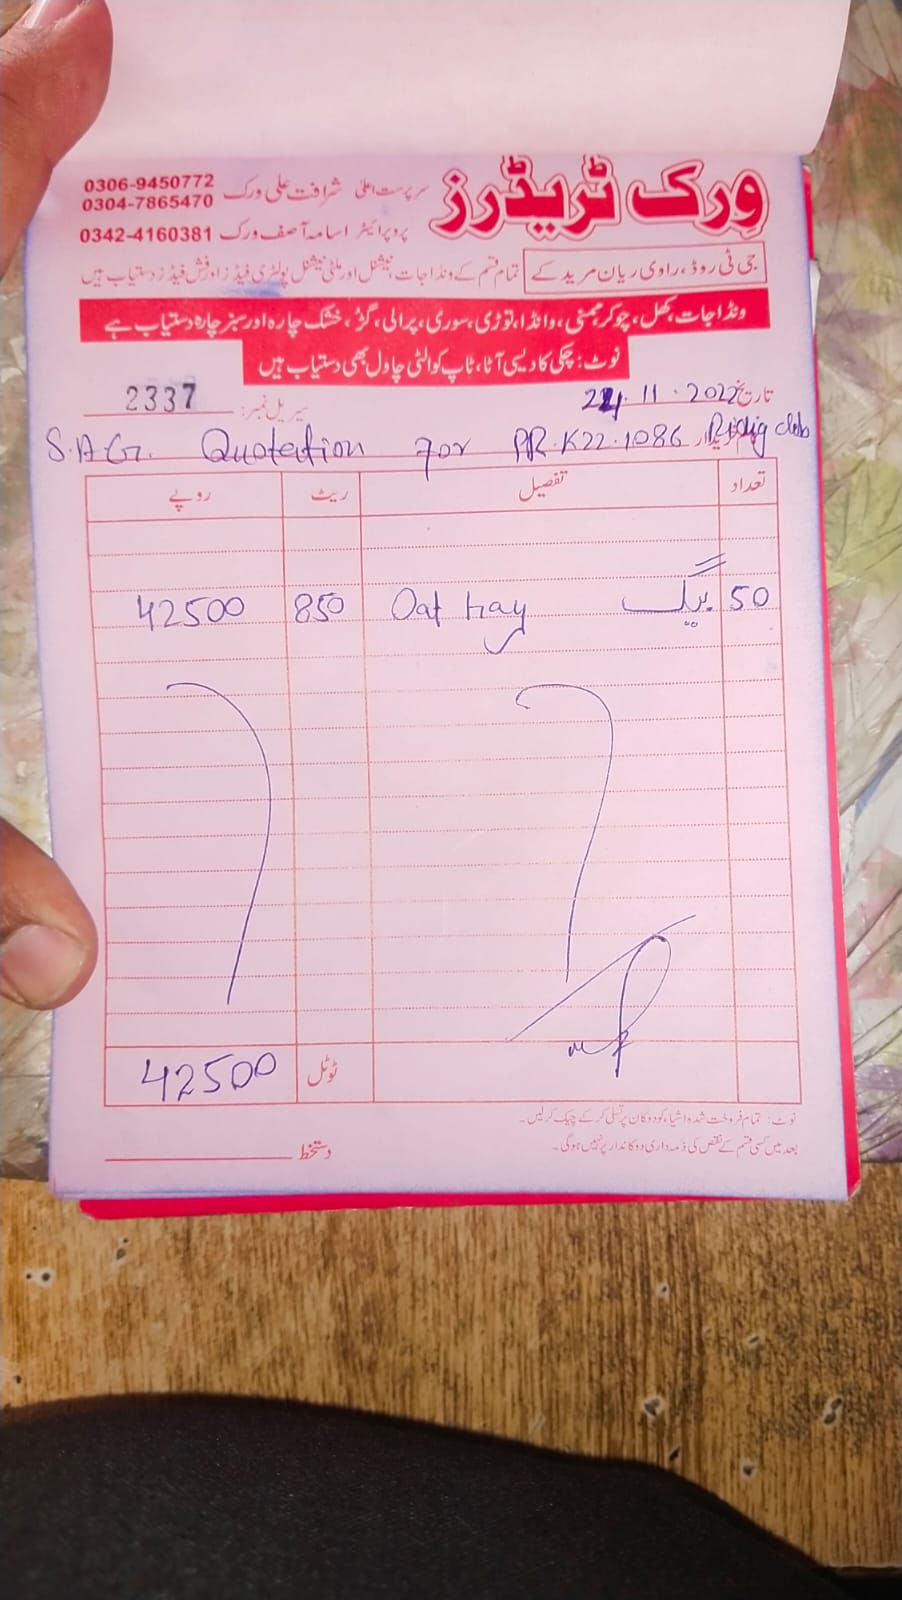 وِرک ٹریڈرز
سرپرست اعلیٰ شرافت علی ورک 0306-9450772
0304-7865470
پروپرائیٹر اسامہ آصف ورک 0342-4160381
جی ٹی روڈ، راوی ریان مریدکے تمام قسم کے ونڈا جات، نیشنل اور ملٹی نیشنل پولٹری فیڈز اور فش فیڈز دستیاب ہیں
ونڈا جات، کھل، چوکر، مکئی، وانڈا، توڑی، سوری، پرالی، گڑ، خشک چارہ اور سبز چارہ دستیاب ہے
نوٹ: چکی کا دیسی آٹا، ٹاپ کوالٹی چاول بھی دستیاب ہیں
تاریخ 24.11.2022 سیریل نمبر: 2337
S.A.G. Quotation for PR.K22.1086 Riding club
تعداد تفصیل ریٹ روپے
50 بیگ Oat hay 850 42500
ٹوٹل 42500
نوٹ: تمام فروخت شدہ اشیاء کو دوکان پر تسلی کر کے چیک کر لیں۔
بعد میں کسی قسم کے نقص کی ذمہ داری دوکاندار پر نہیں ہوگی۔
دستخط